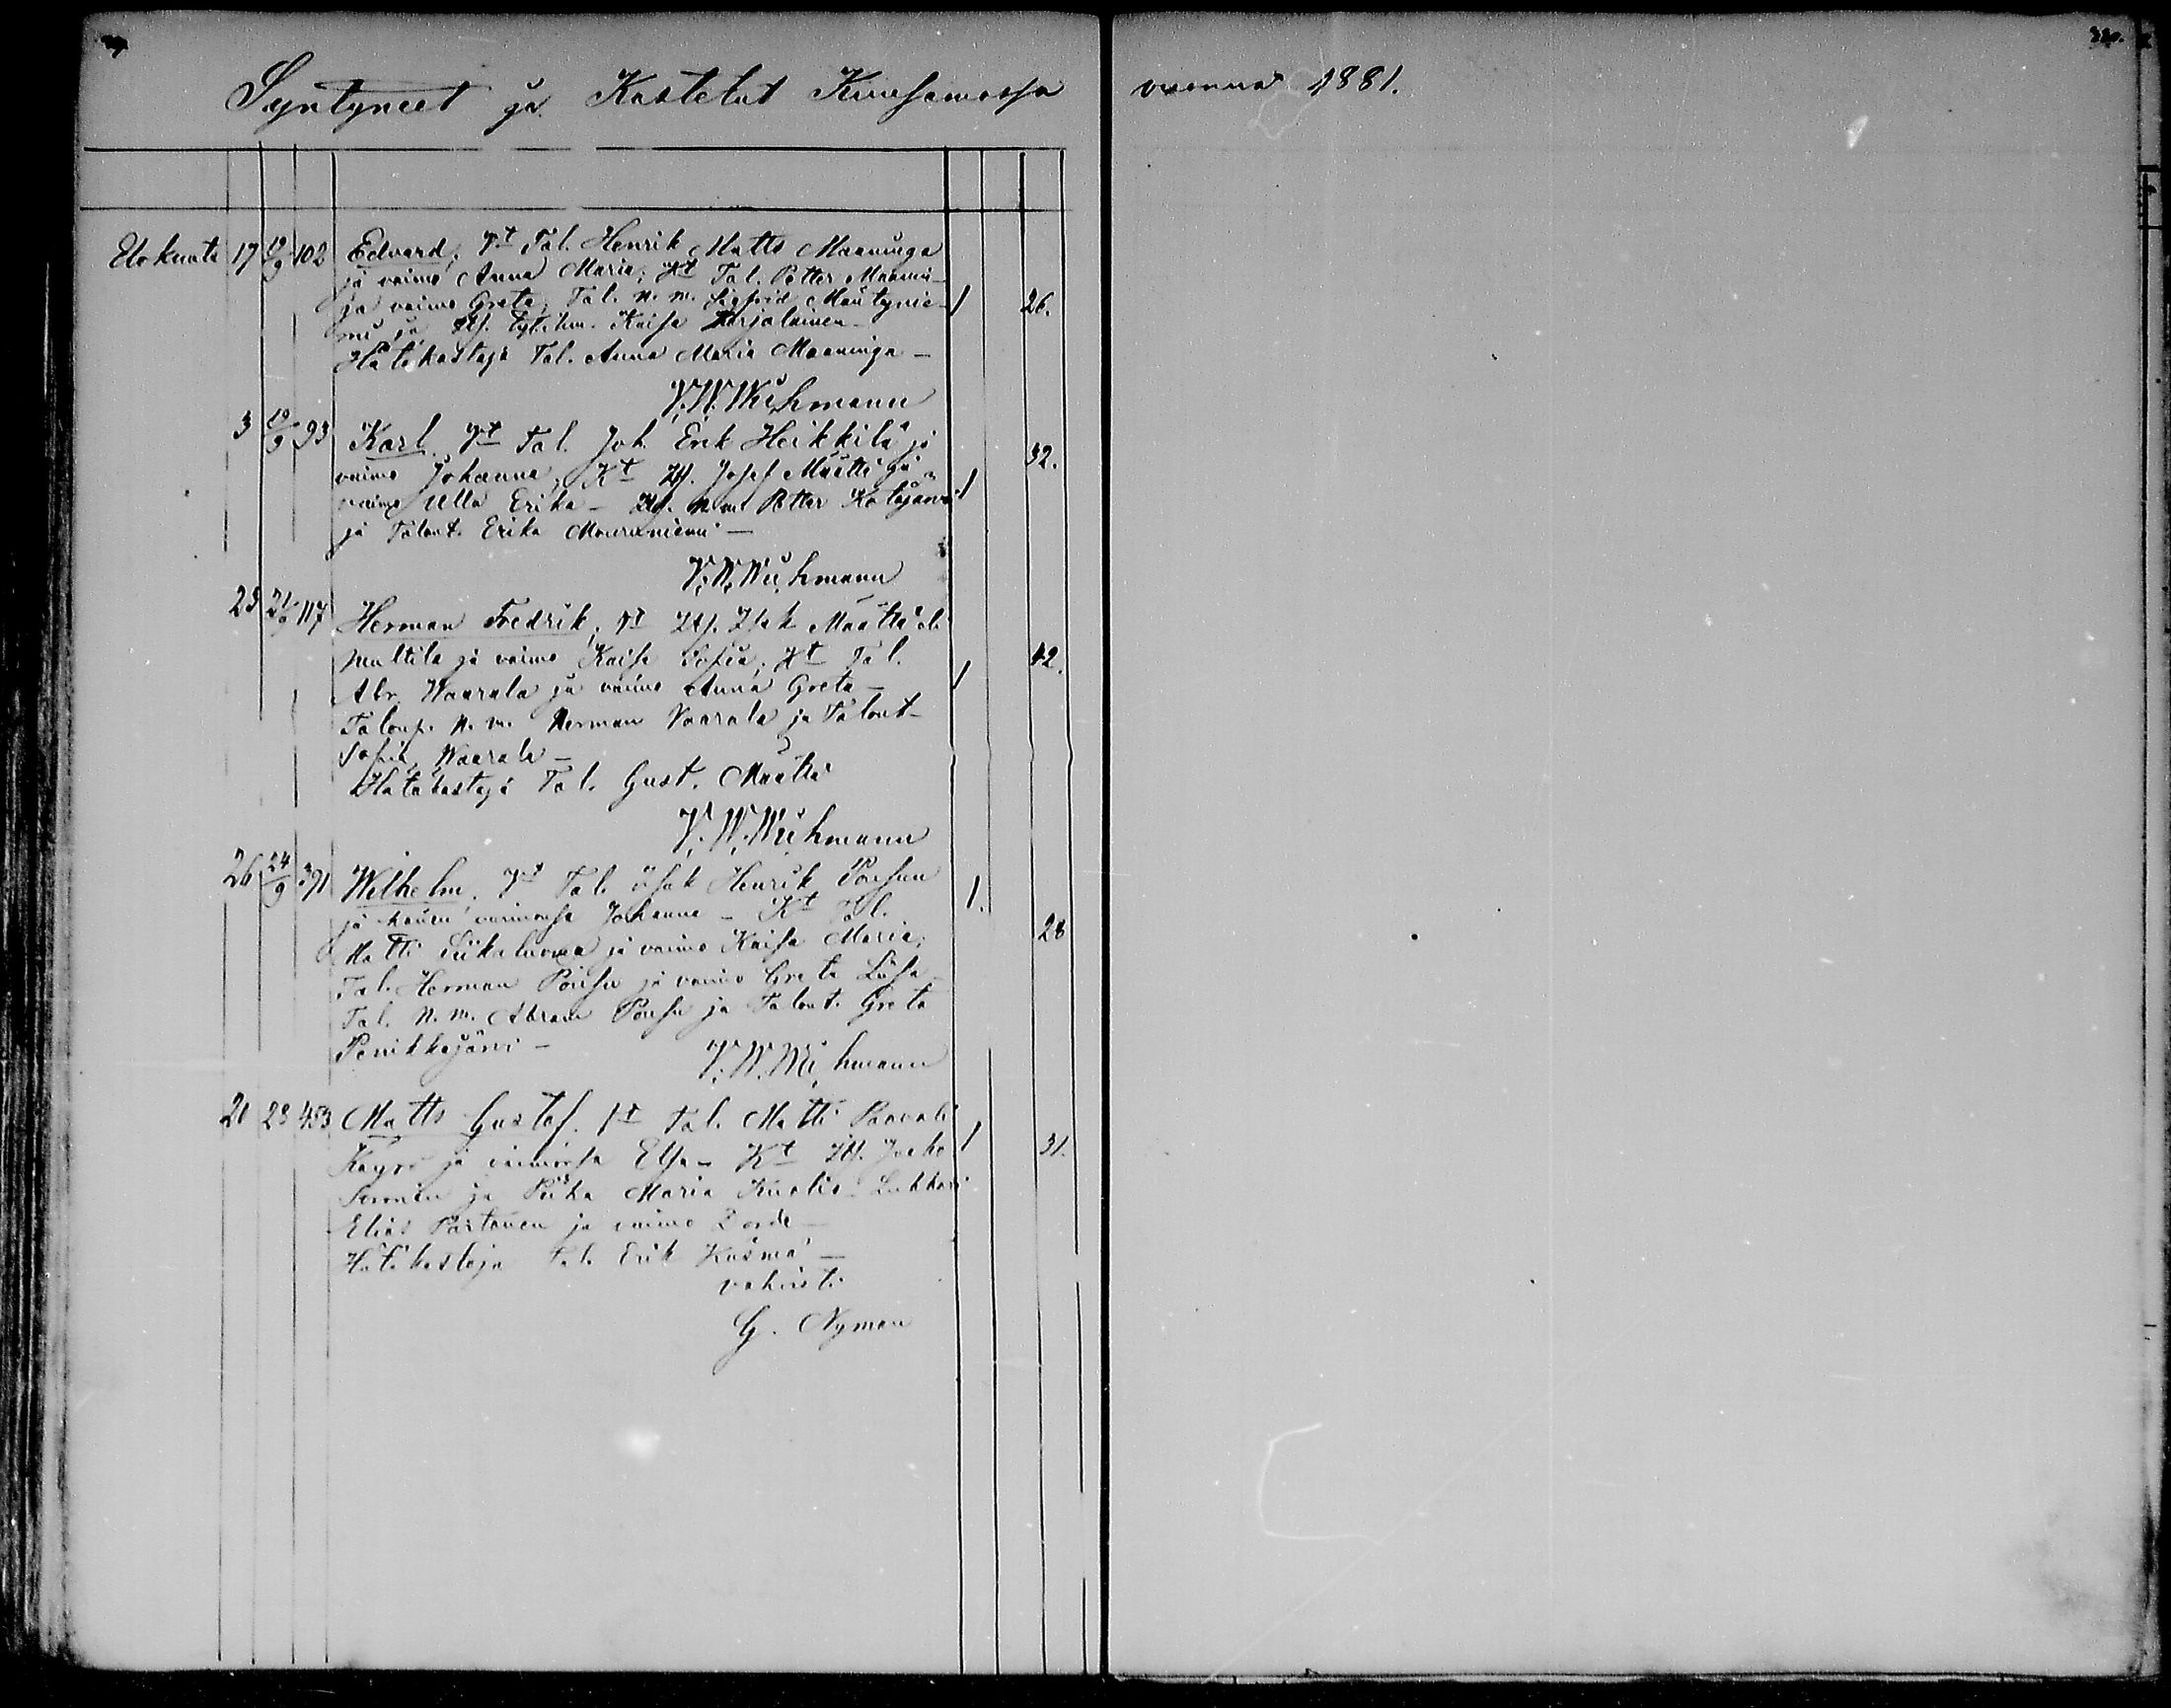 Syntyneet ja Kastetut Kuusamossa vuonna 1881.
Elokuuta 17 19/9 102 Edvard; Vt Tal. Henrik Matts Maaninga
ja vaimo Anna Maria; Kt Tal. Petter Maanin-
ga vaimo Greta; Tal. n. m. Sigfrid Mäntynie- 1 26.
mi ja Its. tyt. Kaisa Karjalainen -
Hätäkastaja Tal. Anna Maria Maaninga -
V. W. Wichmann
3 19/9 93 Karl Vt Tal. Joh. Erik Heikkilä ja 32.
vaimo Johanna; Kt Its. Josef Määttä ja
vaimo Ulla Erika - Its. n. m. Petter Kotajärvi 1
ja Talont. Erika Mourunniemi -
V. W. Wichmann
23 21/9 117 Herman Fredrik; Vt Its. Isak Määttä el.
Multila ja vaimo Kaisa Sofia; Kt Tal. 42.
Abr. Waarala ja vaimo Anna Greta - 1
Talonp. n. m. Herman Vaarala ja Talont-
Sofia Waarala -
Hätäkastaja Tal. Gust. Määttä
V. W. Wichmann
26 24/9 391 Wilhelm; Vt Tal. Isak Henrik Pousu
ja hänen vaimonsa Johanna - Kt Tal. 1.
Matti Siikaluoma ja vaimo Kaisa Maria; 28
Tal. Herman Pousu ja vaimo Greta Liisa
Tal. n. m. Abram Pousu ja Talont. Greta
Penikkajärvi -
V. W. Wichmann
21 28 453 Matts Gustaf. Vt Tal. Matti Paavali
Käyrö ja vaimonsa Elsa - Kt Its. Jaako 1 31.
Sorminen ja Piika Maria Kuolio - Lukkari
Elias Partanen ja vaimo
Hätäkastaja Tal. Erik Kuşmä -
vakuuti
G. Nyman